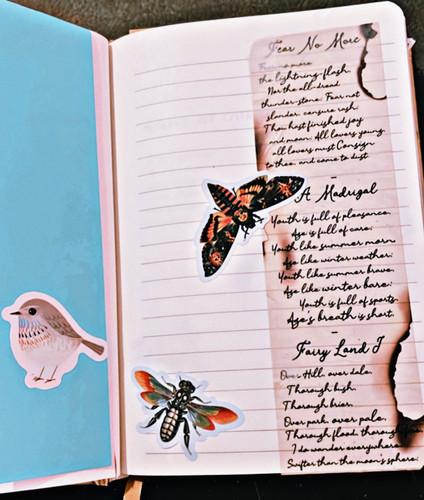 Fear No More
Fear no more
the lightning-flash,
Nor the all-dread
thunder-stone; Fear not
slander, censure rash;
Thou hast finished joy
and moan: All lovers young,
all lovers must Consign
to thee, and come to dust
A Madrigal
Youth is full of pleasance,
Age is full of care;
Youth like summer morn
Age like winter weather;
Youth like summer brave,
Age like winter bare;
Youth is full of sports,
Age's breath is short,
Fairy Land I
Over Hill, over dale,
Thorough bush,
Thorough brier,
Over park, over pale,
Thorough flood, thorough
I do wander everywhere
Swifter than the moon's sphere;